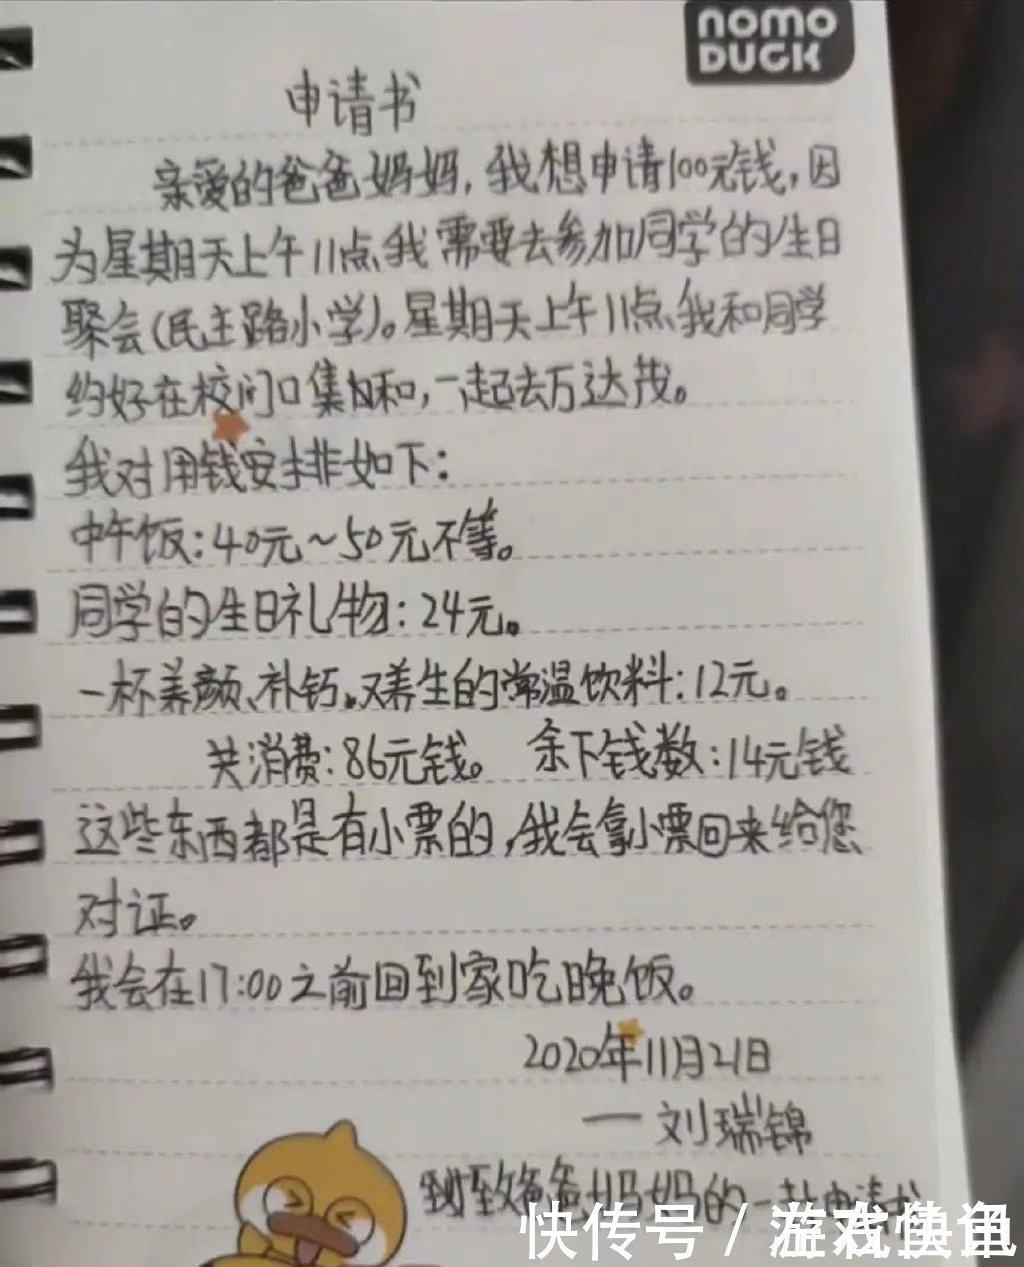 nomo
DUCK
申请书
亲爱的爸爸妈妈，我想申请100元钱，因
为星期天上午11点我需要去参加同学的生日
聚会(民主路小学)。星期天上午11点我和同学
约好在校门口集和，一起去万达茂。
我对用钱安排如下：
中午饭：40元～50元不等。
同学的生日礼物：24元。
一杯养颜、补钙。又养生的常温饮料：12元。
共消费：86元钱。 余下钱数：14元钱
这些东西都是有小票的，我会拿小票回来给您
对证。
我会在17:00之前回到家吃晚饭。
2020年11月21日
一刘瑞锦
致爸爸妈妈的一封申请书
快传号 / 游戏